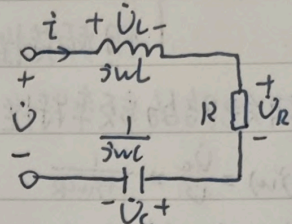 i + U̇L -
jwL
+
U̇
-
R
+
U̇R
-
1
jwc
- U̇c +